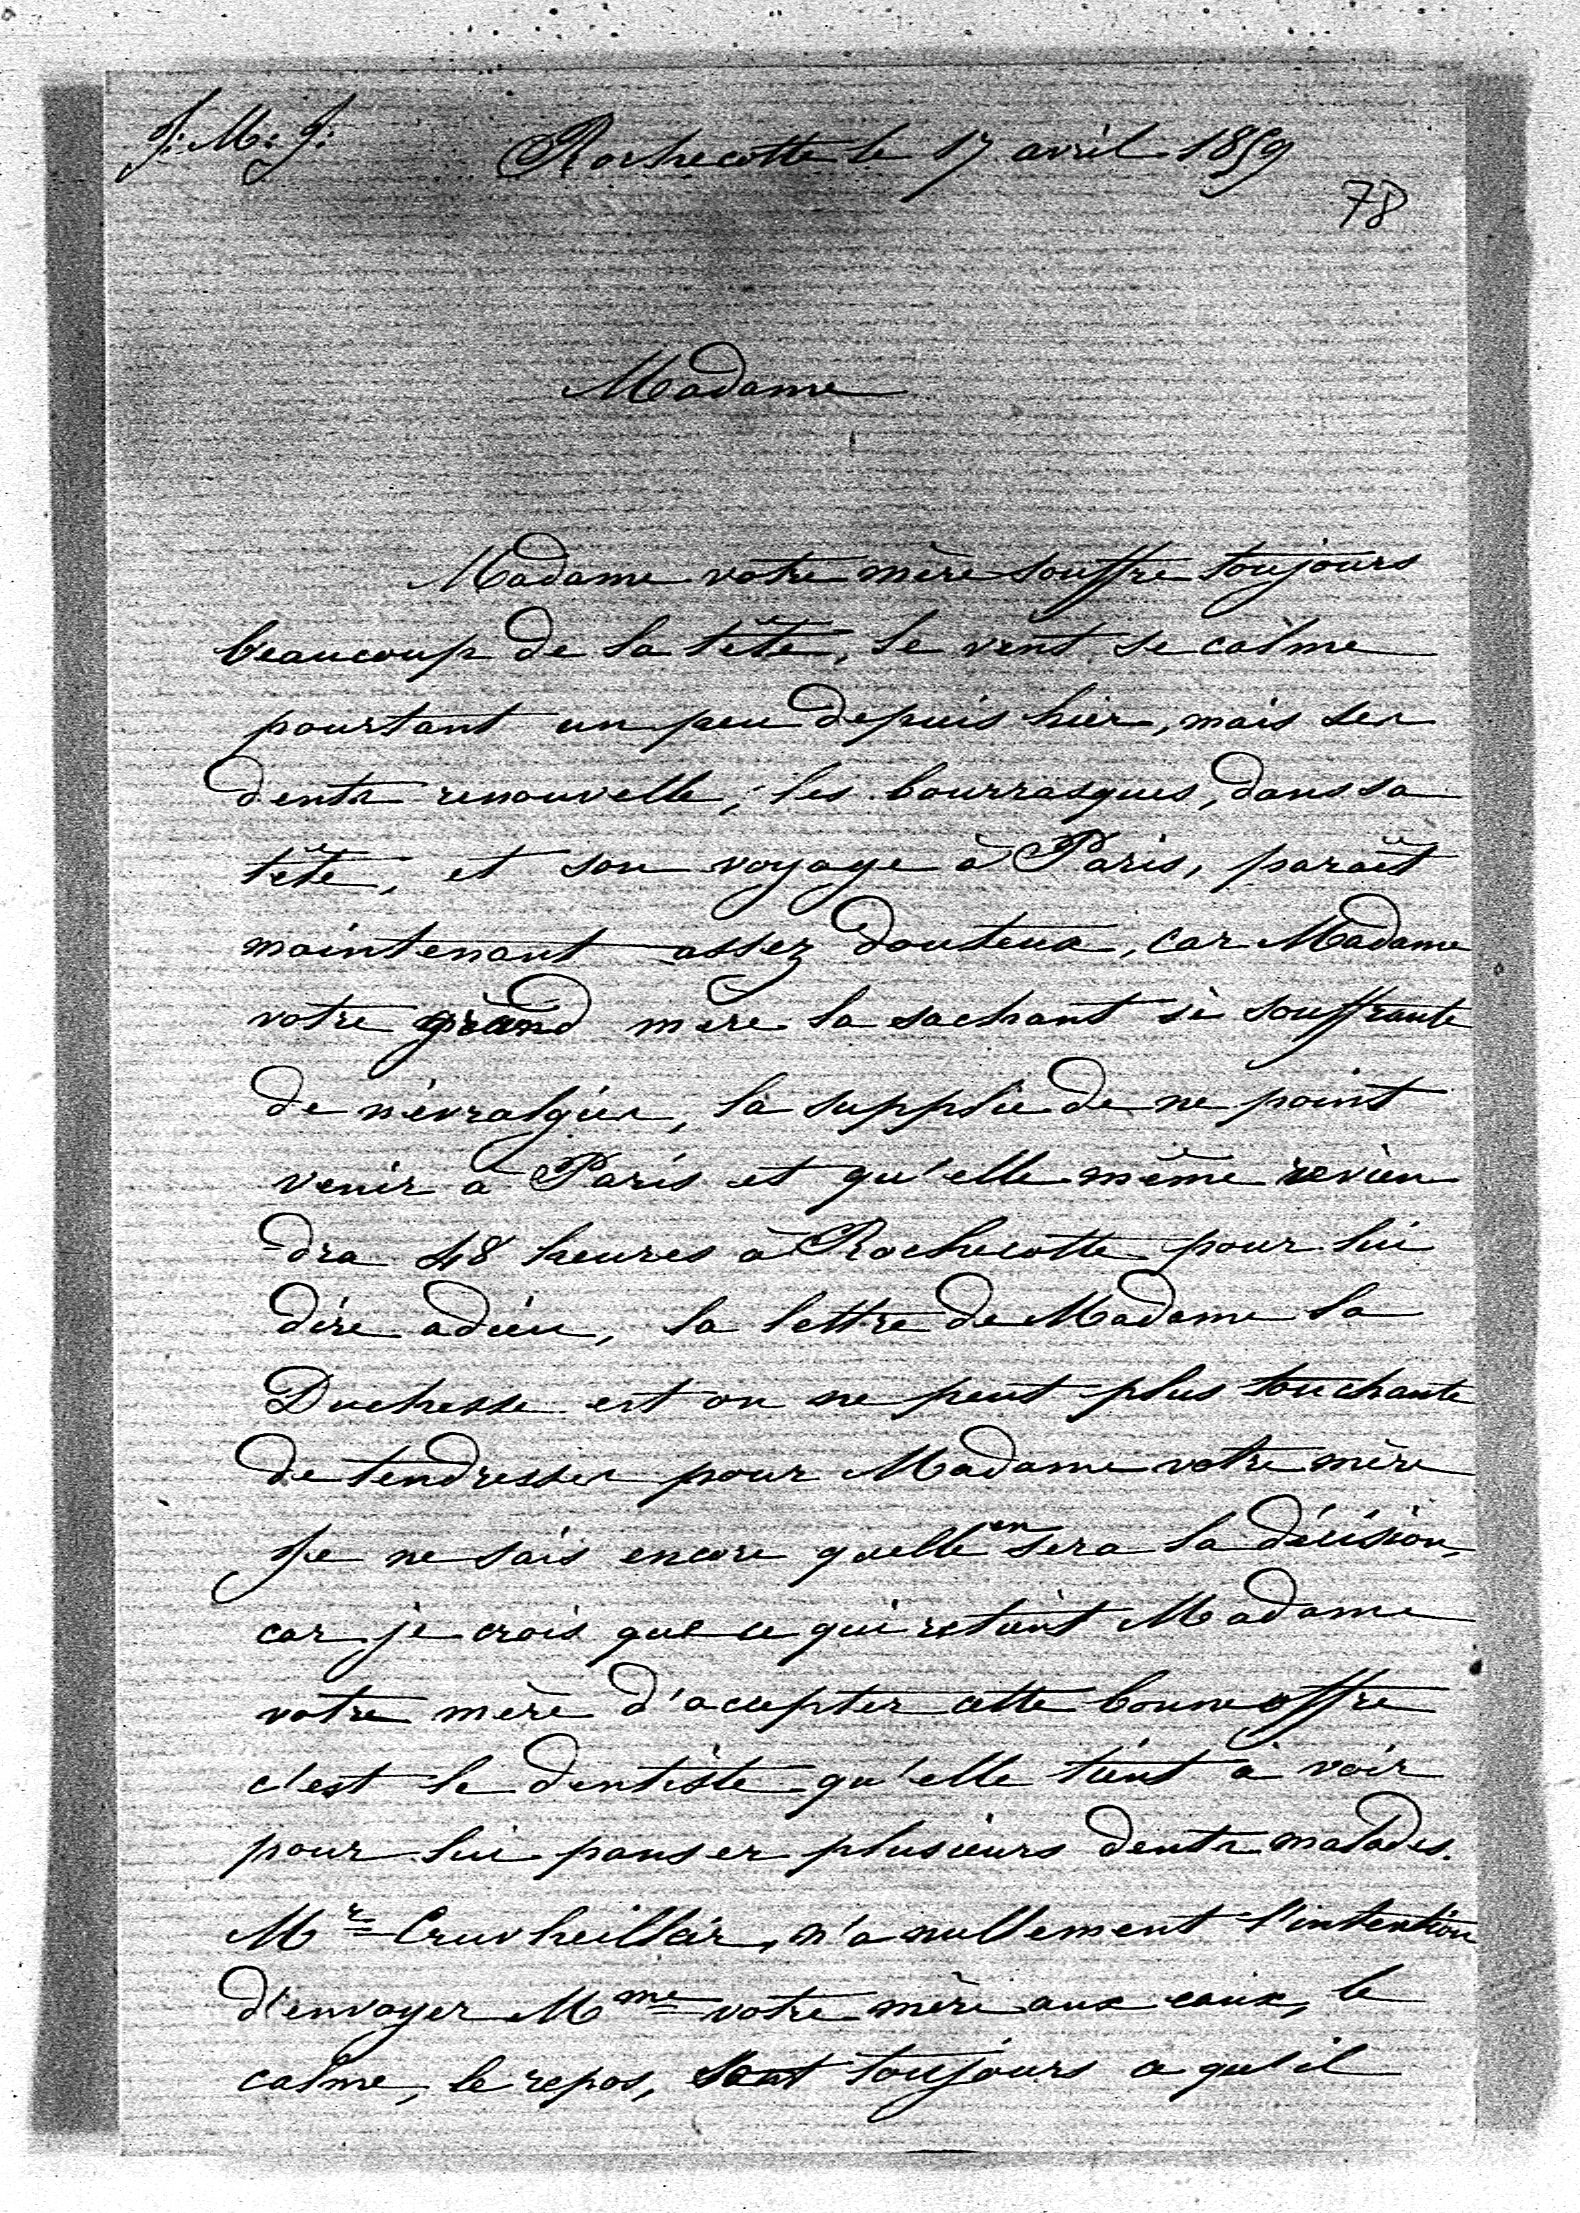 J: M: J:
Rochecotte le 17 avril 1859
78
Madame
Madame votre mère souffre toujours
beaucoup de la tête, le vent se calme
pourtant un peu depuis hier, mais ses
dents renouvelle, les bourrasques, dans sa
tête, et son voyage à Paris, paraît
maintenant assez douteux, car Madame
votre grand mère la sachant si souffrante
de névralgies, la supplie de ne point
venir à Paris et qu'elle même revien
-dra 48 heures à Rochecotte pour lui
dire adieu, la lettre de Madame la
Duchesse est on ne peut plus touchante
de tendresses pour Madame votre mère
Je ne sais encore quelle en sera la décision,
car je crois que ce qui retient Madame
votre mère d'accepter cette bonne offre
c'est le dentiste qu'elle tient à voir
pour lui panser plusieurs dents malades.
Mr Cruvheillier, n'a nullement l'intention
d'envoyer Mme votre mère aux eaux, le
calme, le repos, sont toujours ce qu'il